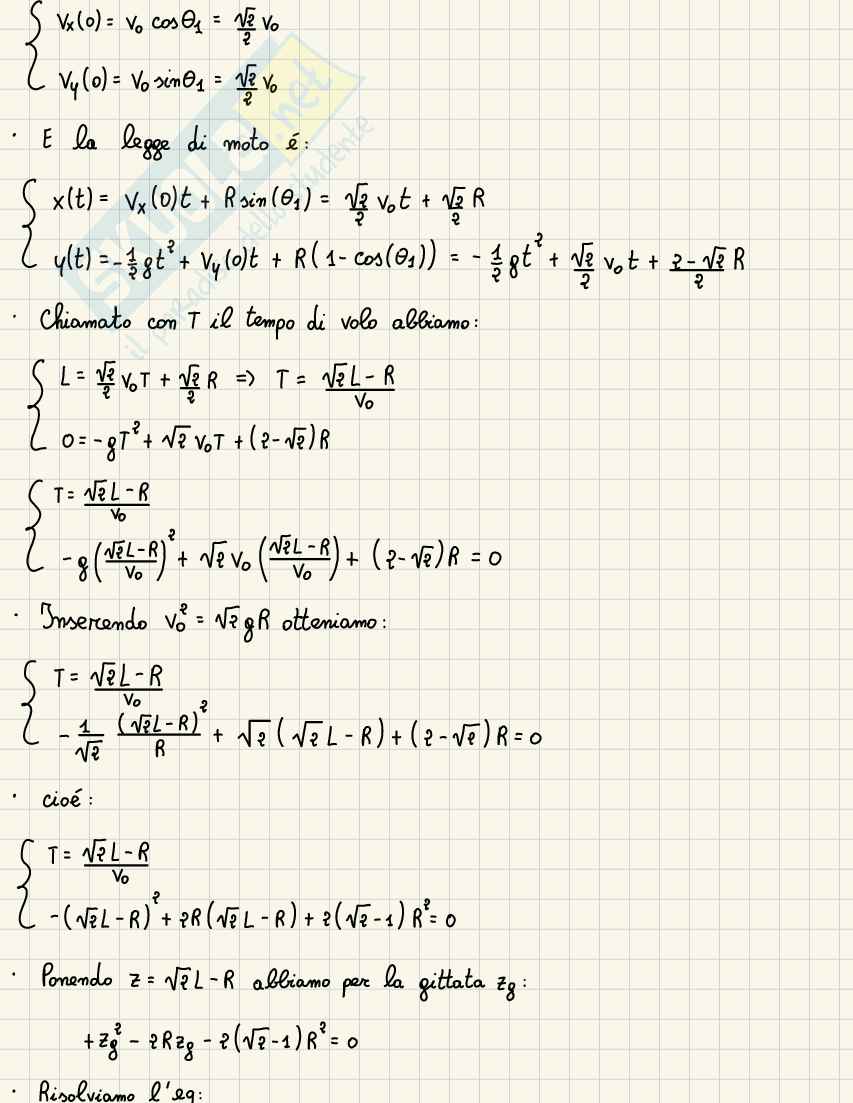 Vx(0) = v₀ cosθ₁ = √2/2 v₀
Vy(0) = v₀ sinθ₁ = √2/2 v₀
· E la legge di moto é:
x(t) = Vx(0)t + R sin(θ₁) = √2/2 v₀t + √2/2 R
y(t) = -1/2 gt² + Vy(0)t + R(1 - cos(θ₁)) = -1/2 gt² + √2/2 v₀t + (2-√2)/2 R
· Chiamato con T il tempo di volo abbiamo:
L = √2/2 v₀T + √2/2 R => T = (√2 L - R)/v₀
0 = -gT² + √2 v₀T + (2-√2)R
T = (√2 L - R)/v₀
-g((√2L-R)/v₀)² + √2 v₀ ((√2L-R)/v₀) + (2-√2)R = 0
· Inserendo v₀² = √2 gR otteniamo:
T = (√2 L - R)/v₀
- 1/√2 (√2L-R)²/R + √2 (√2 L - R) + (2-√2)R = 0
· cioé:
T = (√2 L - R)/v₀
-(√2L-R)² + 2R(√2L-R) + 2(√2-1)R² = 0
· Ponendo z = √2 L-R abbiamo per la gittata zg:
+zg² - 2Rzg - 2(√2-1)R² = 0
· Risolviamo l'eq:
SKUOLA.net